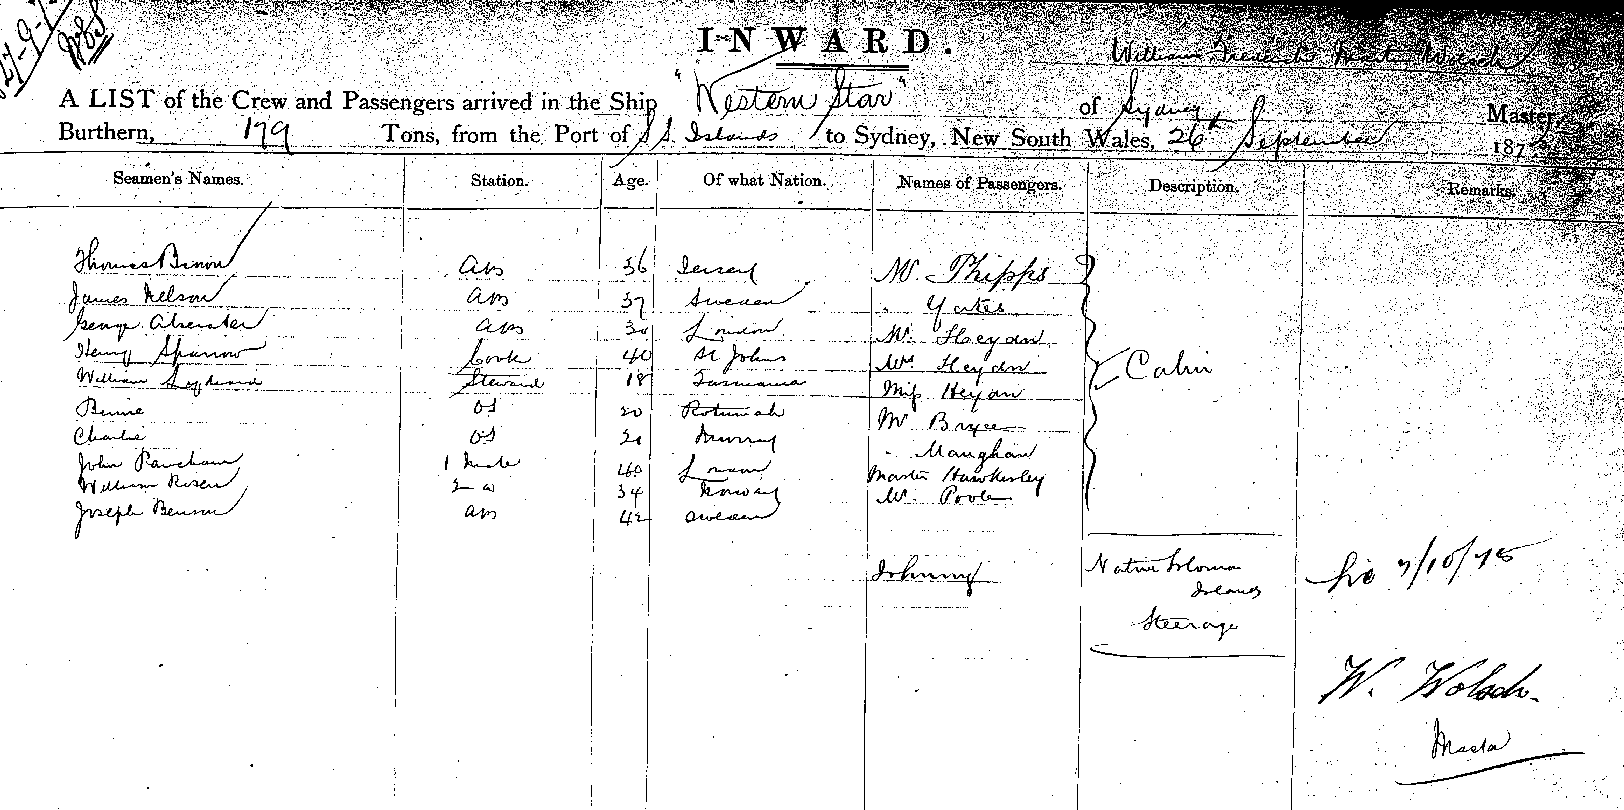 27-9-7
INWARD.
William Frederick Wolsch
A LIST of the Crew and Passengers arrived in the Ship "Western Star" of Sydney Master,
Burthern, 179 Tons, from the Port of S S. Islands to Sydney, New South Wales, 26th September 187
Seamen's Names. Station. Age. Of what Nation. Names of Passengers. Description. Remarks.
Thomas ABS 36 Jersey Mr. Phipps
James Nelson ABS 37 Sweden " Yates
George ABS 30 London Mr. Heydn
Henry Sparrow Cook 40 St Johns Mrs Heydn Cabin
William Steward 18 Tasmania Miss Heydn
Bennie OS 20 Rotumah Mr Bryce
Charlie OS 20 Murray " Maughan
John 1 Mate 40 London Master Hawkesley
William Rosen 2 " 34 Norway Mr. Poole
Joseph Benson ABS 42 Sweden
Johnny Native Soloman
Islands
Steerage
7/10/75
W. Wolsch.
Master